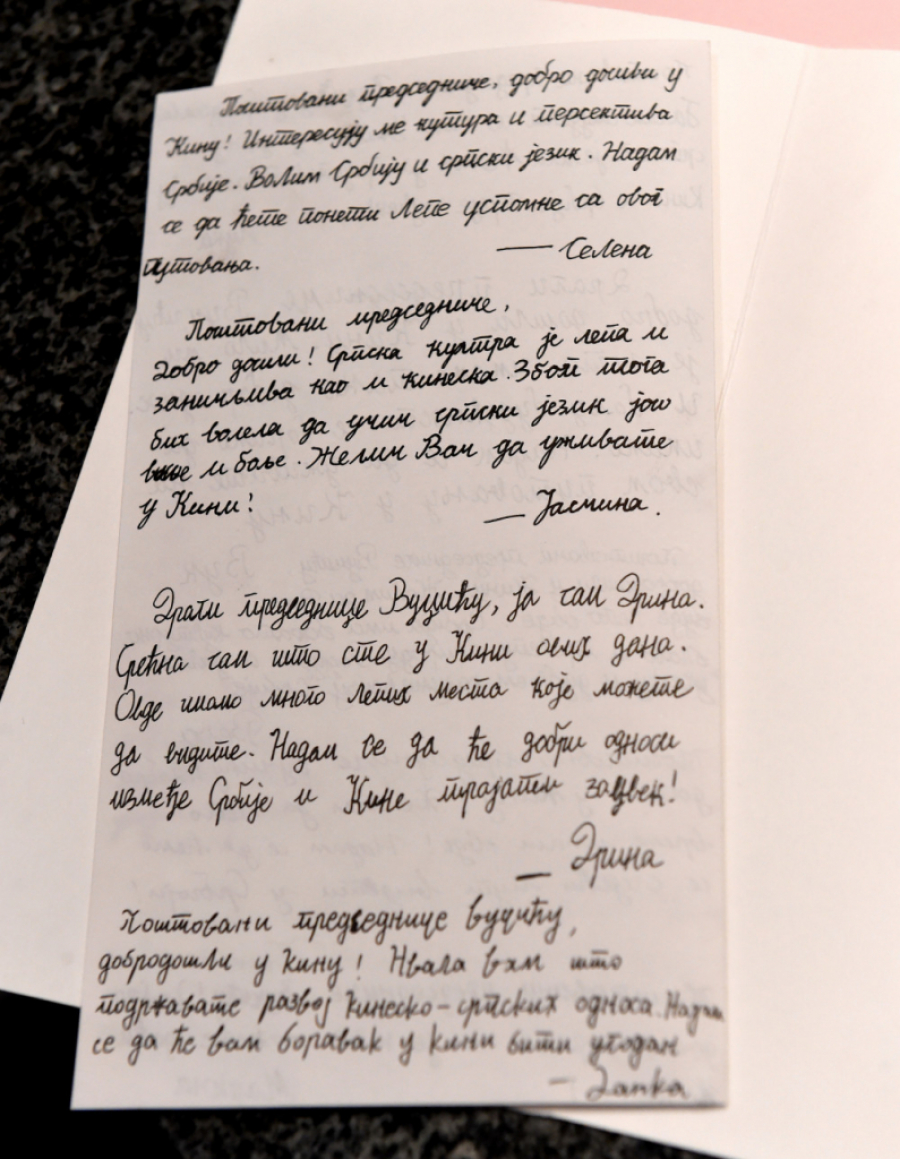 Поштовани председниче, добро дошви у
Кину! Интересују ме култура и персектива
Србије. Волим Србију и српски језик. Надам
се да ћете понети лепе успомне са овог
путовања.
— Селена
Поштовани председниче,
Добро дошли! Српска култра је лепа и
заничљива као и кинеска. Због тога
бих волела да учим српски језик још
више и боље. Желим Вам да уживате
у Кини!
— Јасмина.
Драги председнице Вуцићу, ја сам Дрина.
Срећна сам што сте у Кини ових дана.
Овде имамо много лепих места које можете
да видите. Надам се да ће добри односи
између Србије и Кине трајати заувек!
— Дрина
Поштовани председнице вучићу,
добродошли у кину! Хвала вам што
подржавате развој кинеско-српских односа. Надам
се да ће вам боравак у кини бити угодан
—